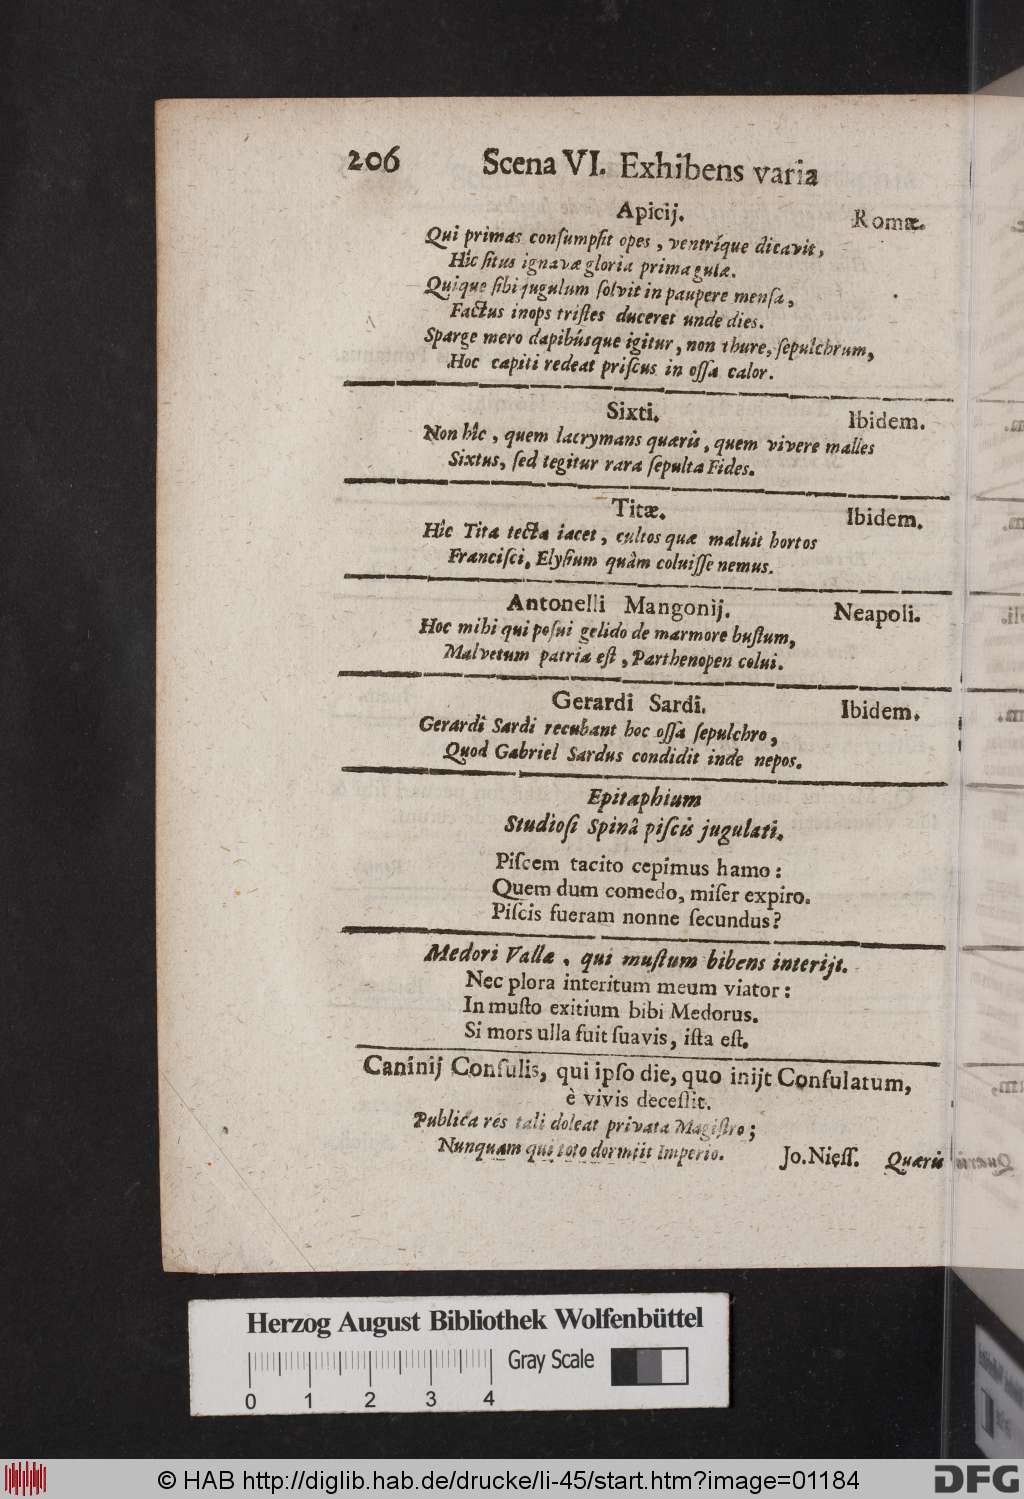 206 Scena VI. Exhibens varia
Apicij. Romæ.
Qui primas conſumpſit opes, ventríque dicavit,
Hîc ſitus ignavæ gloria prima gulæ.
Quique ſibi jugulum ſolvit in paupere menſa,
Factus inops triſtes duceret unde dies.
Sparge mero dapibúsque igitur, non thure, ſepulchrum,
Hoc capiti redeat priſcus in oſſa calor.
Sixti. Ibidem.
Non hîc, quem lacrymans quæris, quem vivere malles
Sixtus, ſed tegitur rara ſepulta Fides.
Titæ. Ibidem.
Hîc Tita tecta iacet, cultos quæ maluit hortos
Franciſci, Elyſium quàm coluiſſe nemus.
Antonelli Mangonij. Neapoli.
Hoc mihi qui poſui gelido de marmore buſtum,
Malvetum patria eſt, Parthenopen colui.
Gerardi Sardi. Ibidem.
Gerardi Sardi recubant hoc oſſa ſepulchro,
Quod Gabriel Sardus condidit inde nepos.
Epitaphium
Studioſi Spinâ piſcis jugulati.
Piſcem tacito cepimus hamo:
Quem dum comedo, miſer expiro.
Piſcis fueram nonne ſecundus?
Medori Vallæ, qui muſtum bibens interijt.
Nec plora interitum meum viator:
In muſto exitium bibi Medorus.
Si mors ulla fuit ſuavis, iſta eſt.
Caninij Conſulis, qui ipſo die, quo inijt Conſulatum,
è vivis deceſſit.
Publica res tali doleat privata Magiſtro;
Nunquam qui toto dormiit Imperio. Jo. Nieſſ. Quæris
Herzog August Bibliothek Wolfenbüttel
Gray Scale
0 1 2 3 4
© HAB http://diglib.hab.de/drucke/li-45/start.htm?image=01184
DFG